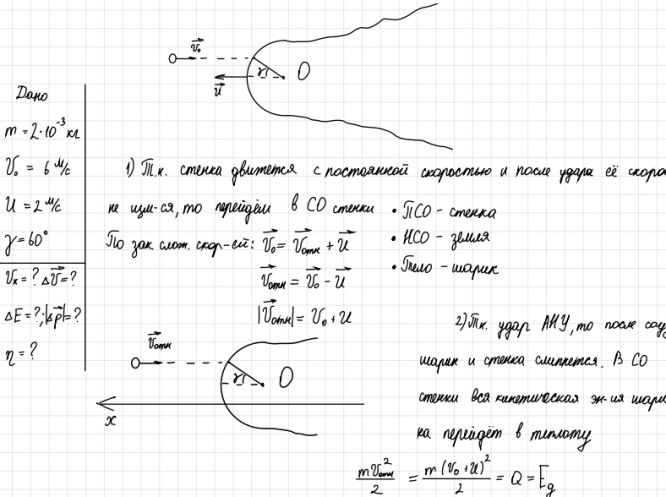 v⃗₀
γ
O
u⃗
Дано
m = 2·10⁻³ кг
V₀ = 6 м/с
U = 2 м/с
γ = 60°
Vк = ? Δv⃗ = ?
ΔE = ?; |Δp⃗| = ?
η = ?
1) Т.к. стенка движется с постоянной скоростью и после удара её скоро
не изм-ся, то перейдём в СО стенки
• ПСО - стенка
• НСО - земля
• Тело - шарик
По зак. слож. скор-ей: v⃗₀ = v⃗отн + u⃗
v⃗отн = v⃗₀ - u⃗
|v⃗отн| = v₀ + u
v⃗отн
γ
O
x
2) Т.к. удар АНУ, то после соу
шарик и стенка слипнется. В СО
стенки вся кинетическая эн-ия шари
ка перейдёт в теплоту
mv²отн/2 = m(v₀+u)²/2 = Q = Eд